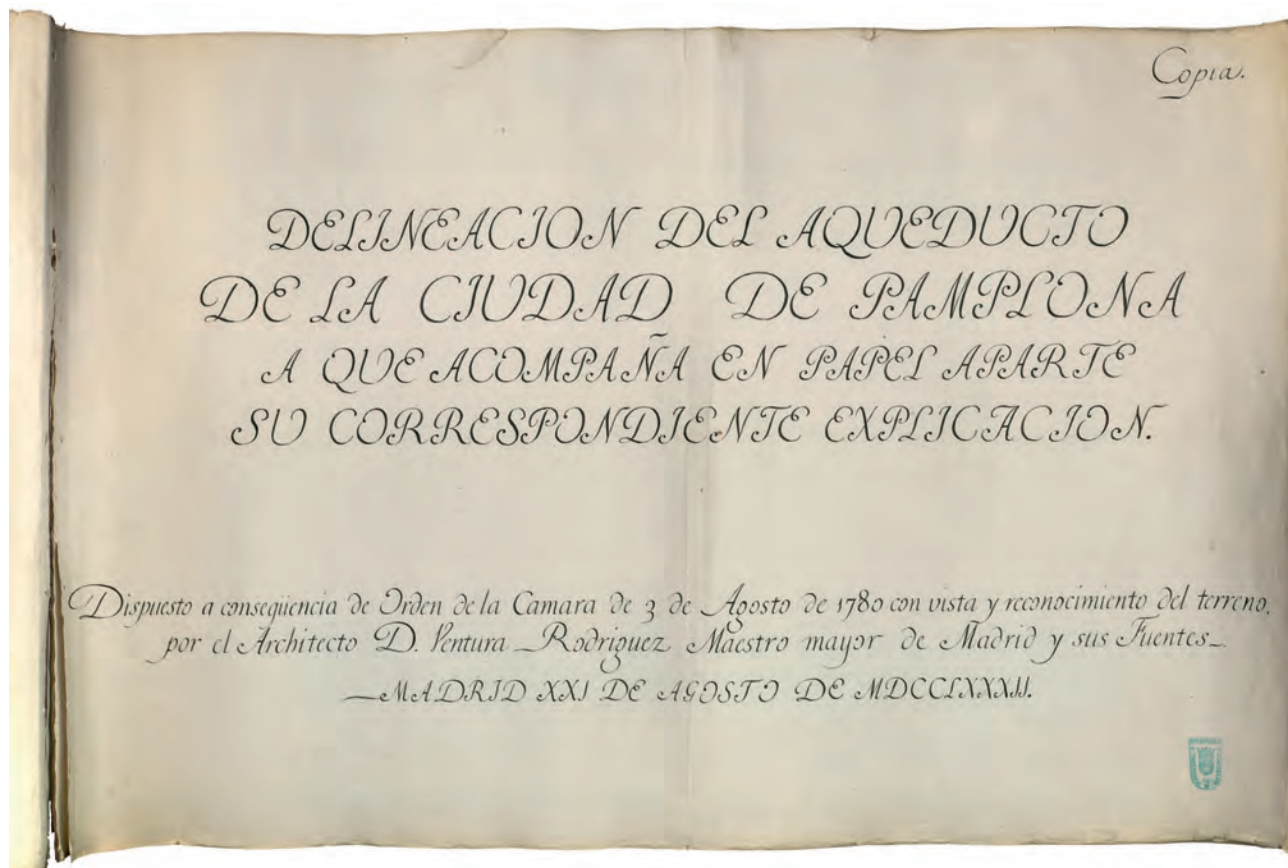 Copia.
DELINEACION DEL AQUEDUCTO
DE LA CIUDAD DE PAMPLONA
A QUE ACOMPAÑA EN PAPEL APARTE
SU CORRESPONDIENTE EXPLICACION.
Dispuesto a conseqüencia de Orden de la Camara de 3 de Agosto de 1780 con vista y reconocimiento del terreno,
por el Architecto D. Ventura Rodriguez Maestro mayor de Madrid y sus Fuentes
MADRID XXI DE AGOSTO DE MDCCLXXXII.